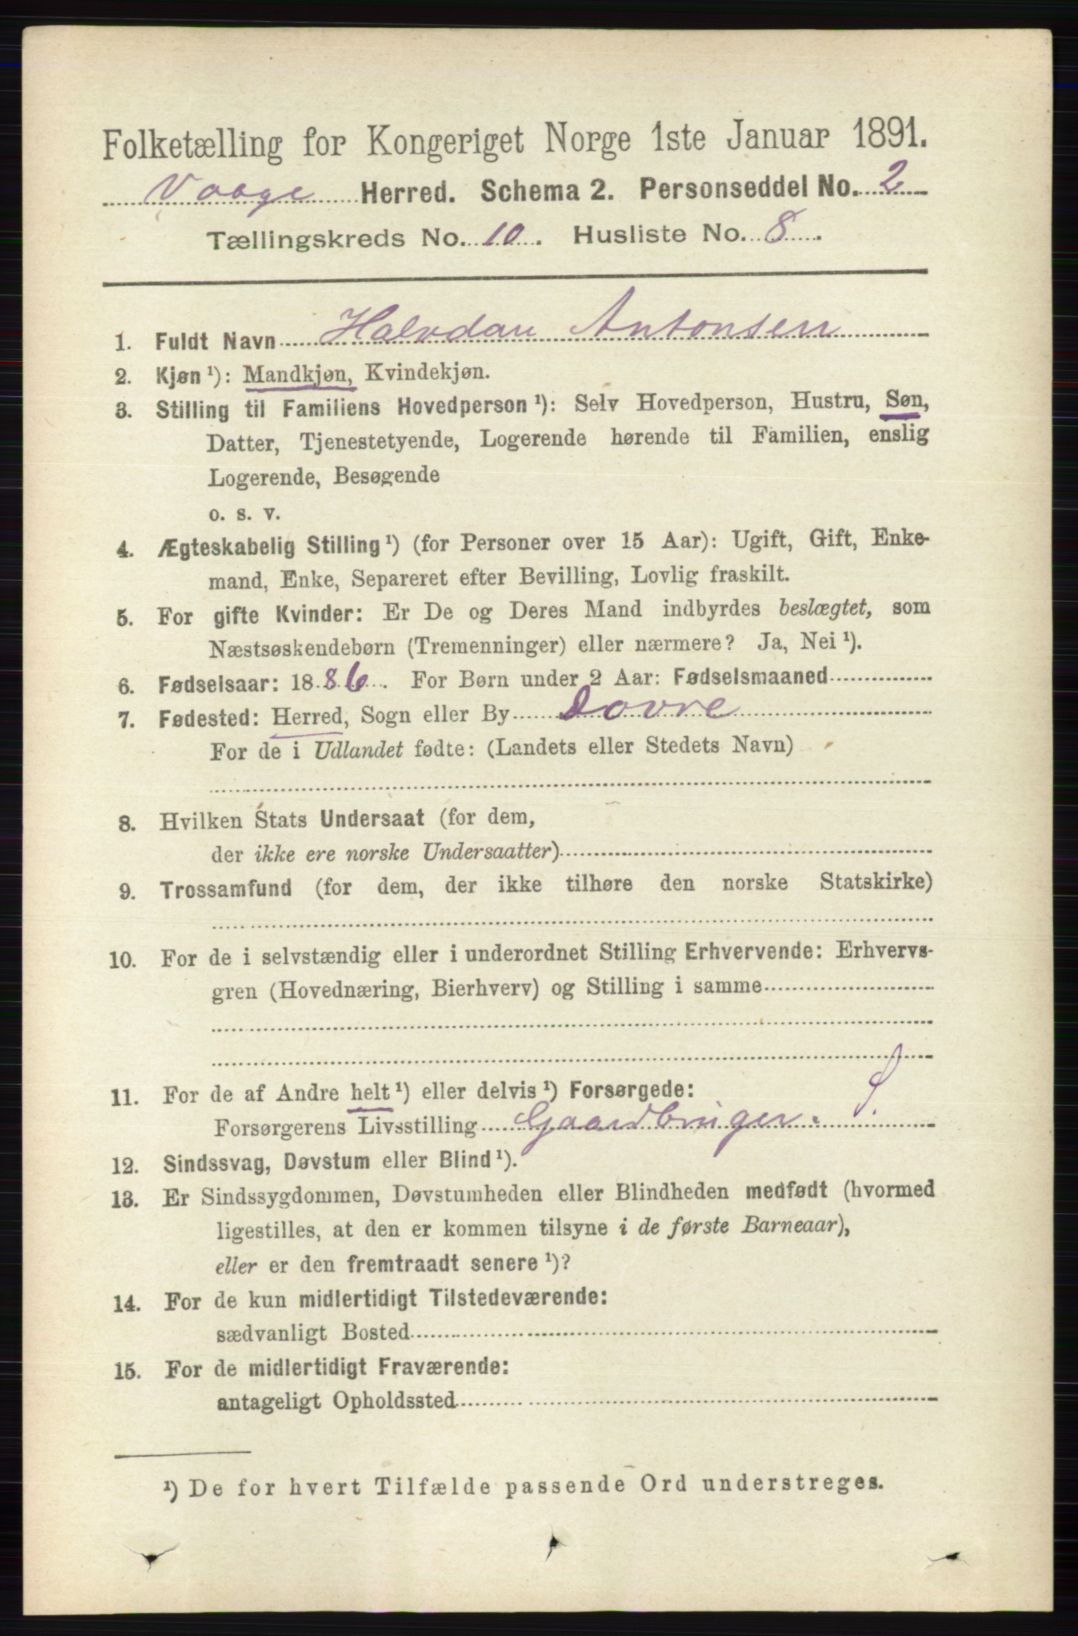 Folketælling for Kongeriget Norge 1ste Januar 1891.
Vaage Herred. Schema 2. Personseddel No. 2
Tællingskreds No. 10. Husliste No. 8.
1. Fuldt Navn Halvdan Antonsen
2. Kjøn ¹): Mandkjøn, Kvindekjøn.
3. Stilling til Familiens Hovedperson ¹): Selv Hovedperson, Hustru, Søn,
Datter, Tjenestetyende, Logerende hørende til Familien, enslig
Logerende, Besøgende
o. s. v.
4. Ægteskabelig Stilling ¹) (for Personer over 15 Aar): Ugift, Gift, Enke-
mand, Enke, Separeret efter Bevilling, Lovlig fraskilt.
5. For gifte Kvinder: Er De og Deres Mand indbyrdes beslægtet, som
Næstsøskendebørn (Tremenninger) eller nærmere? Ja, Nei ¹).
6. Fødselsaar: 1886. For Børn under 2 Aar: Fødselsmaaned
7. Fødested: Herred, Sogn eller By Dovre
For de i Udlandet fødte: (Landets eller Stedets Navn)
8. Hvilken Stats Undersaat (for dem,
der ikke ere norske Undersaatter)
9. Trossamfund (for dem, der ikke tilhøre den norske Statskirke)
10. For de i selvstændig eller i underordnet Stilling Erhvervende: Erhvervs-
gren (Hovednæring, Bierhverv) og Stilling i samme
11. For de af Andre helt ¹) eller delvis ¹) Forsørgede:
Forsørgerens Livsstilling Gaardbruger. S.
12. Sindssvag, Døvstum eller Blind ¹).
13. Er Sindssygdommen, Døvstumheden eller Blindheden medfødt (hvormed
ligestilles, at den er kommen tilsyne i de første Barneaar),
eller er den fremtraadt senere ¹)?
14. For de kun midlertidigt Tilstedeværende:
sædvanligt Bosted
15. For de midlertidigt Fraværende:
antageligt Opholdssted
¹) De for hvert Tilfælde passende Ord understreges.